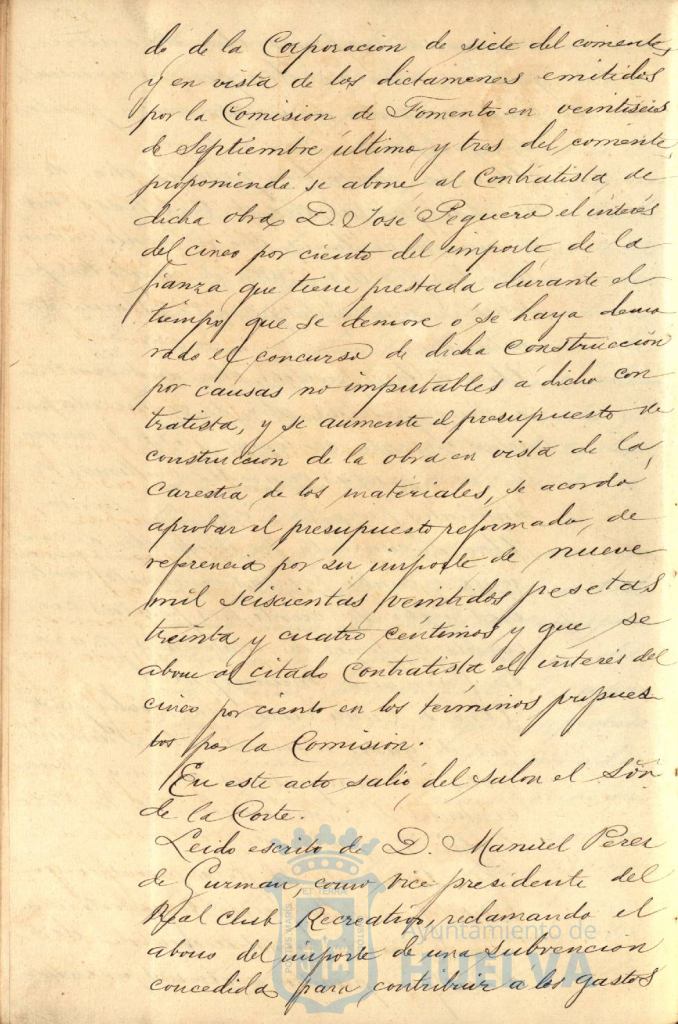 do de la Corporacion de siete del corriente,
y en vista de los dictamenes emitidos
por la Comision de Fomento en veintiseis
de Septiembre último y tres del corriente,
proponiendo se abone al Contratista de
dicha obra D. José Peguero el interés
del cinco por ciento del importe de la
fianza que tiene prestada durante el
tiempo que se demore ó se haya demo
rado el concurso de dicha construcción
por causas no imputables á dicho con
tratista, y se aumente el presupuesto de
construcción de la obra en vista de la
carestía de los materiales, se acordó
aprobar el presupuesto reformado, de
referencia por su importe de nueve
mil seiscientas veintidos pesetas
treinta y cuatro céntimos y que se
abone al citado contratista el interés del
cinco por ciento en los términos propues
tos por la Comisión.
En este acto salió, del salon el Sõr.
de la Corte.
Leido escrito de D. Manuel Perez
de Guzman, como vice presidente del
Real Club Recreativo, reclamando el
abono del importe de una subvencion
concedida para contribuir a los gastos
Ayuntamiento de
HUELVA